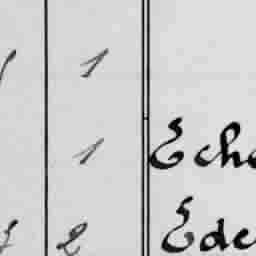 1
1 Eche
2 Ede